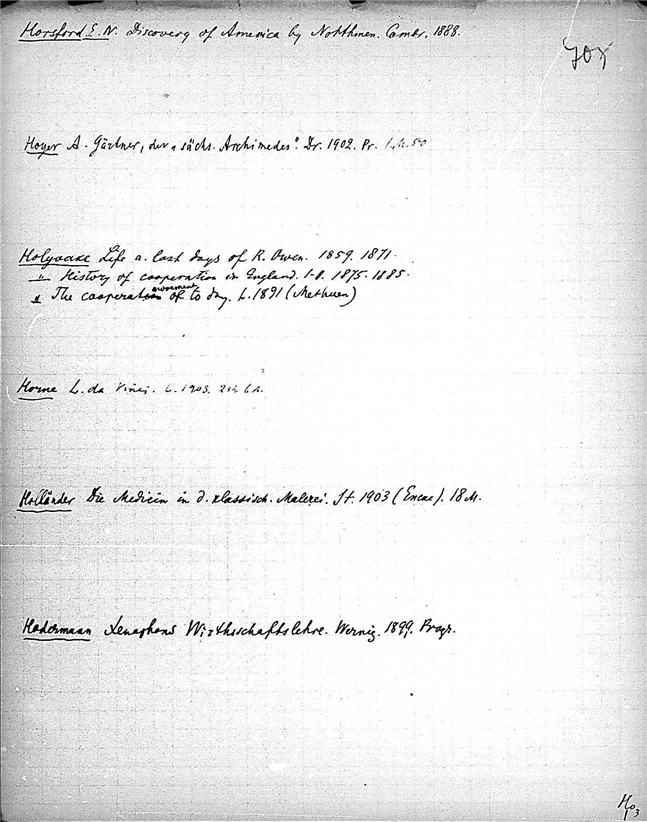 Horsford E. N. Discovery of America by Northmen. Cambr. 1888.
70
Hoyer A. Gärtner, der „sächs. Archimedes". Dr. 1902. Pr. 1 M. 50
Holyoake Life a. last days of R. Owen. 1859. 1871.
" History of cooperation in England. I-II. 1875. 1885.
" The cooperation movement of to day. L. 1891 (Methuen)
Horne L. da Vinci. L. 1903.
Holländer Die Medicin in d. klassisch. Malerei. St. 1903 (Encke). 18 M.
Hodermann Xenophons Wirthsschaftslehre. Wernig. 1899. Progr.
Ho
1 3